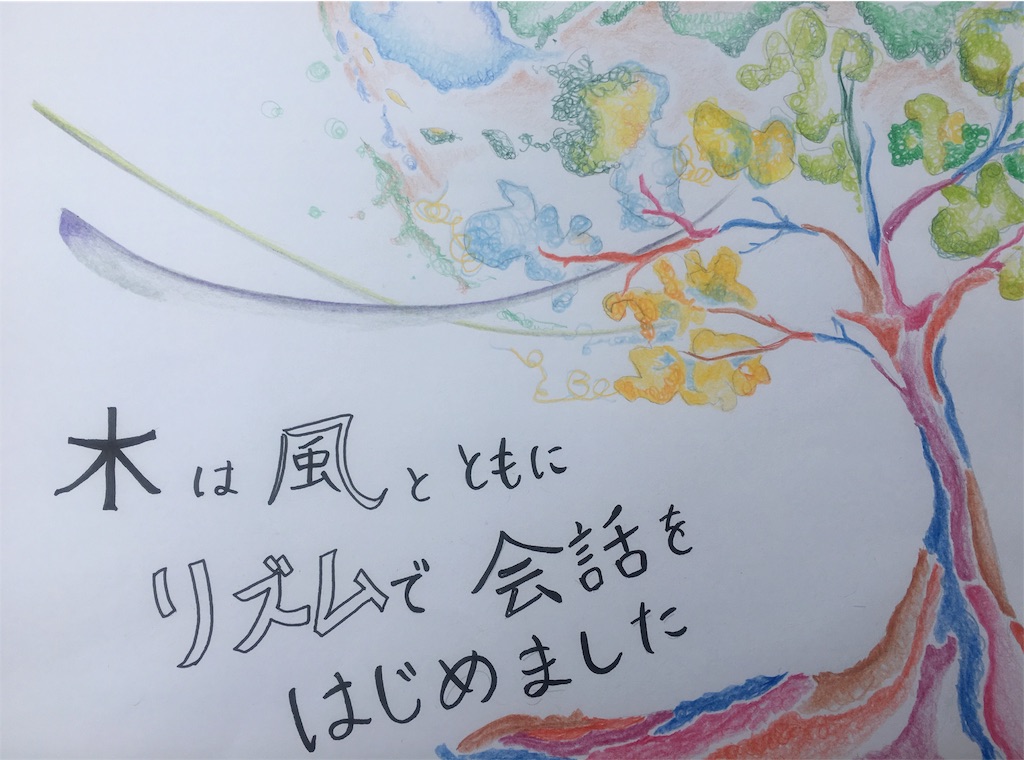 木は風とともに
リズムで会話を
はじめました